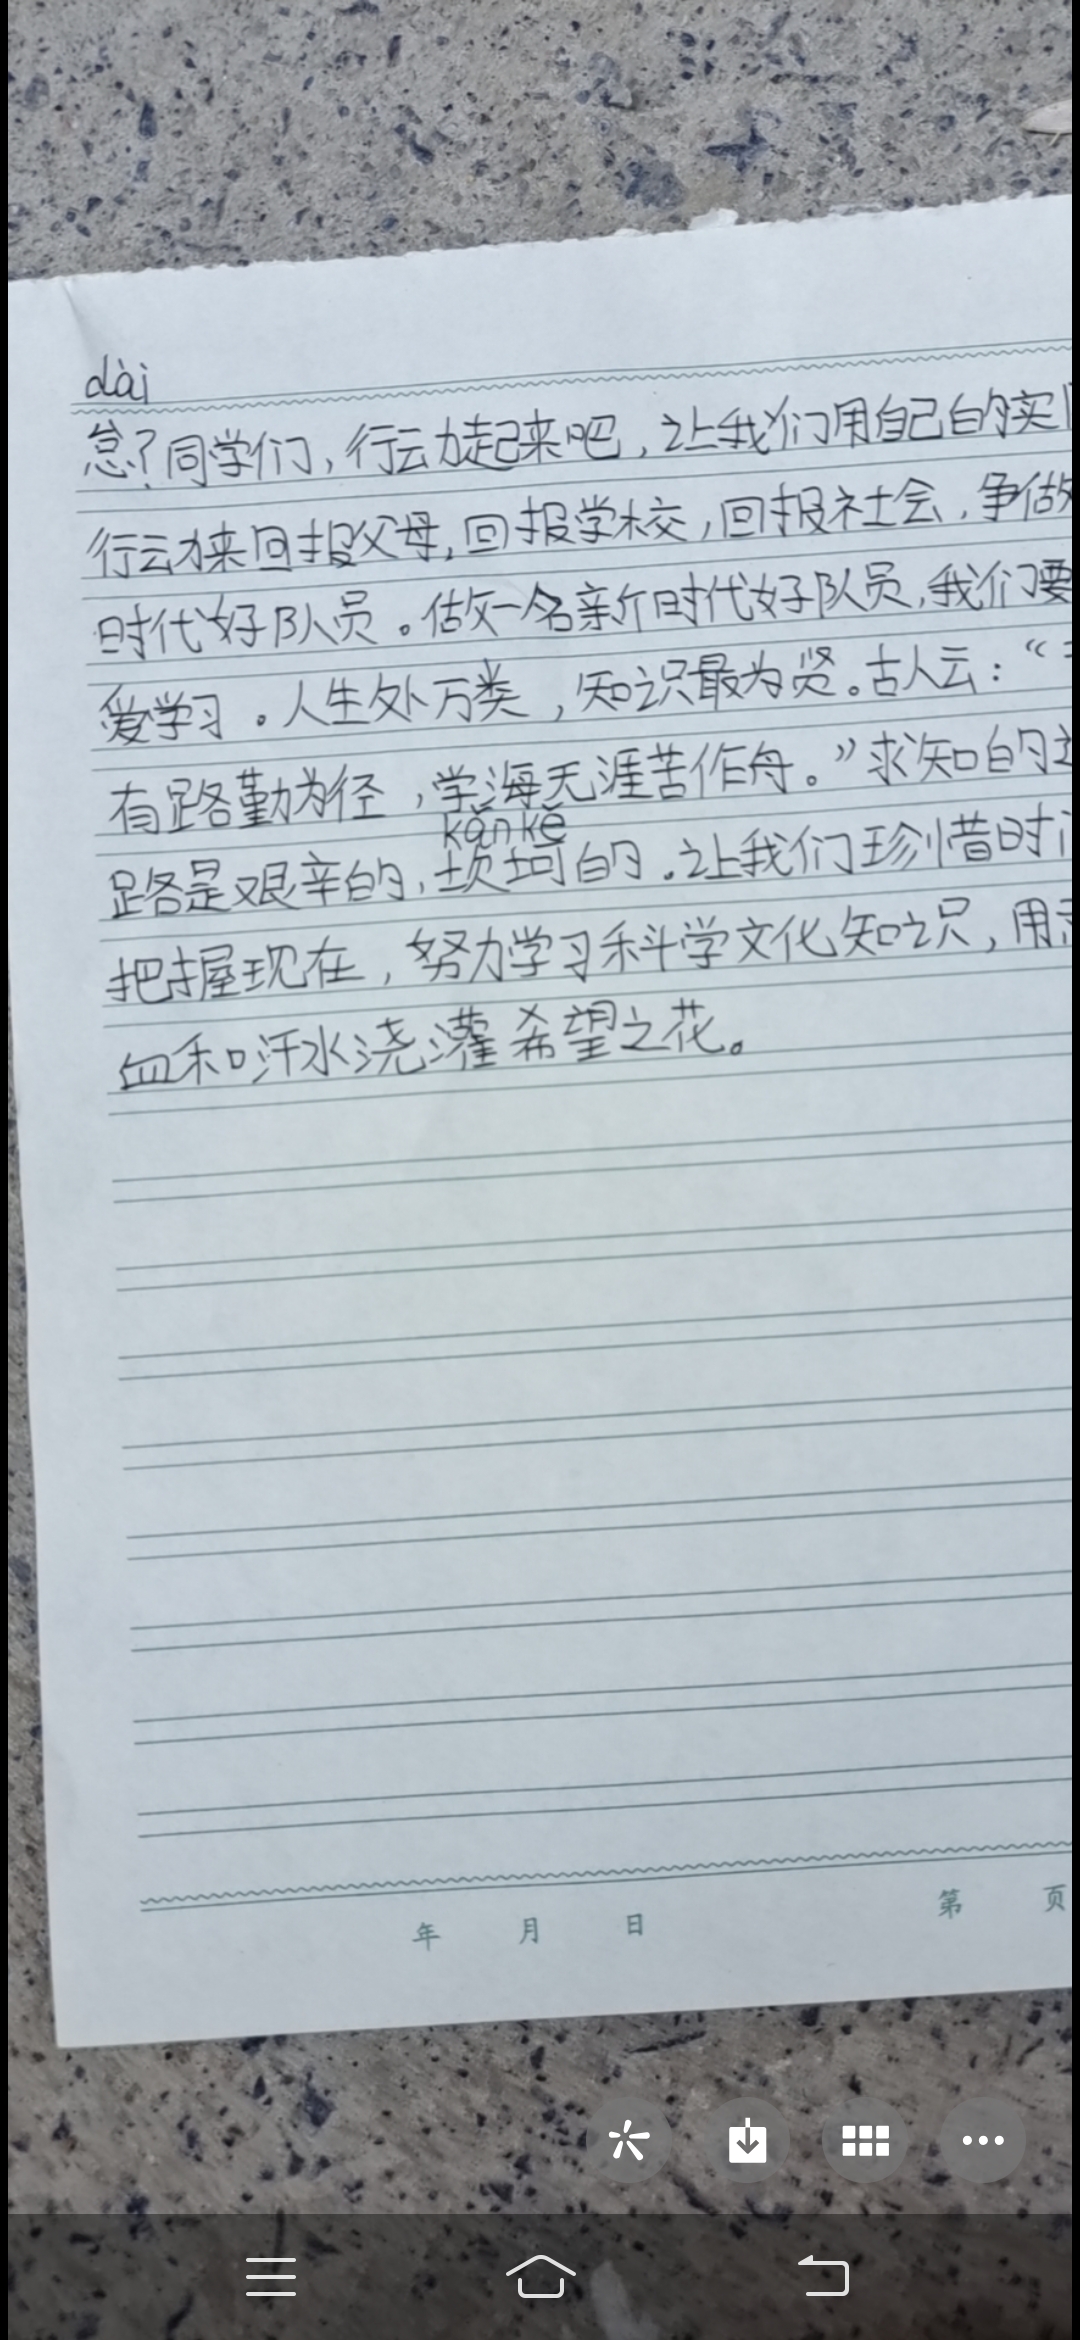 dài
怠?同学们,行动起来吧,让我们用自己的实
行动来回报父母,回报学校,回报社会,争做
时代好队员。做一名新时代好队员,我们要
爱学习。人生处万类,知识最为贤。古人云:“
有路勤为径,学海无涯苦作舟。”求知的
kǎn kě
路是艰辛的,坎坷的.让我们珍惜时
把握现在,努力学习科学文化知识,用
血和汗水浇灌希望之花。
年 月 日 第 页